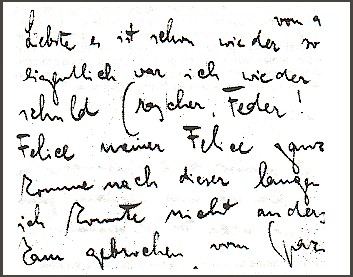 von 9
Liebste es ist schon wieder so
eigentlich war ich wieder
schuld (rascher, Feder!
Felice meiner Felice ganz
komme nach dieser langen
ich konnte nicht anders
kam gebrochen vom